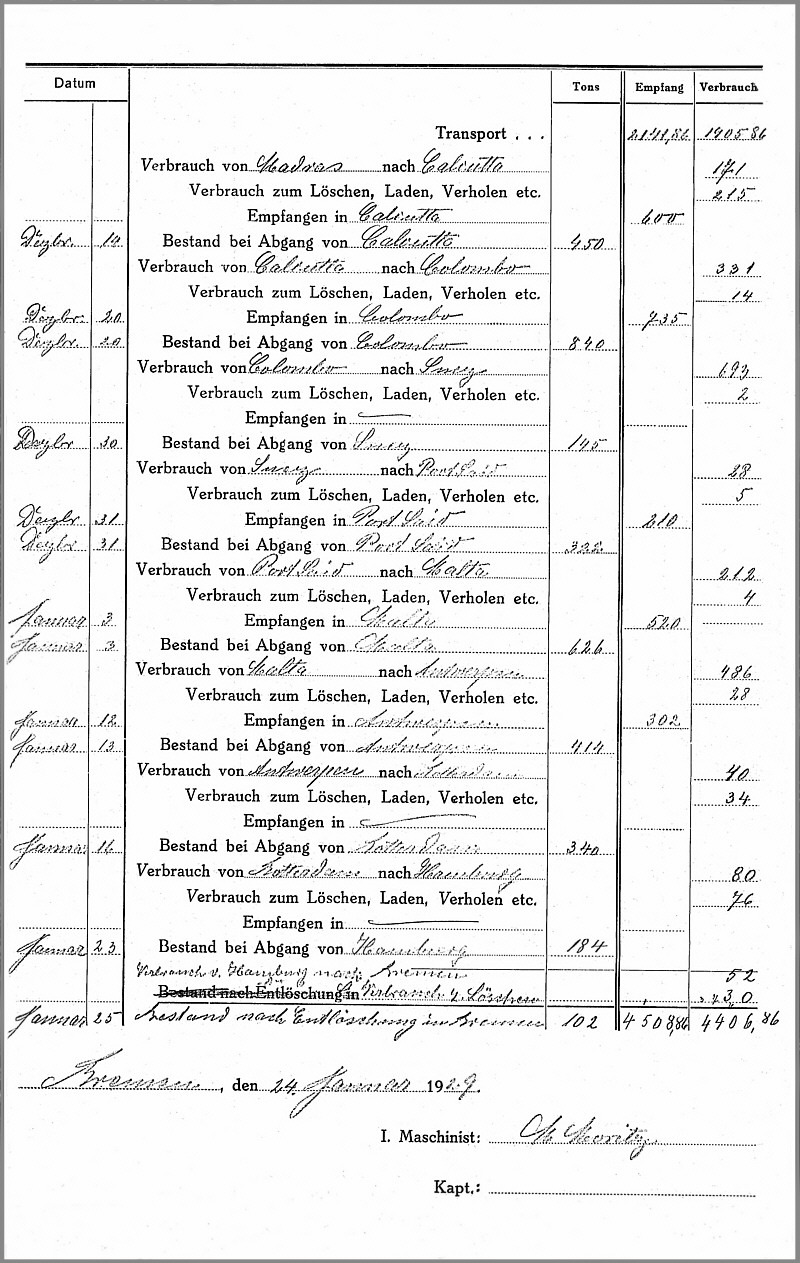 Datum Tons Empfang Verbrauch
Transport . . . 2141,86 1905 86
Verbrauch von Madras nach Calcutta 171
Verbrauch zum Löschen, Laden, Verholen etc. 215
Empfangen in Calcutta 600
Dezbr. 14 Bestand bei Abgang von Calcutta 450
Verbrauch von Calcutta nach Colombo 331
Verbrauch zum Löschen, Laden, Verholen etc. 14
Dezbr. 20 Empfangen in Colombo 735
Dezbr. 20 Bestand bei Abgang von Colombo 840
Verbrauch von Colombo nach Suez 693
Verbrauch zum Löschen, Laden, Verholen etc. 2
Empfangen in —
Dezbr 30 Bestand bei Abgang von Suez 145
Verbrauch von Suez nach Port Said 28
Verbrauch zum Löschen, Laden, Verholen etc. 5
Dezbr. 31 Empfangen in Port Said 210
Dezbr 31 Bestand bei Abgang von Port Said 322
Verbrauch von Port Said nach Malta 212
Verbrauch zum Löschen, Laden, Verholen etc. 4
Januar 3 Empfangen in Malta 520
Januar 3 Bestand bei Abgang von Malta 626
Verbrauch von Malta nach Antwerpen 486
Verbrauch zum Löschen, Laden, Verholen etc. 28
Januar 12 Empfangen in Antwerpen 302
Januar 13 Bestand bei Abgang von Antwerpen 414
Verbrauch von Antwerpen nach Rotterdam 40
Verbrauch zum Löschen, Laden, Verholen etc. 34
Empfangen in —
Januar 16 Bestand bei Abgang von Rotterdam 340
Verbrauch von Rotterdam nach Hamburg 80
Verbrauch zum Löschen, Laden, Verholen etc. 76
Empfangen in —
Januar 23 Bestand bei Abgang von Hamburg 184
Verbrauch v. Hamburg nach Bremen 52
Bestand nach Entlöschung in Verbrauch z. Löschen 30
Januar 25 Bestand nach Entlöschung in Bremen 102 4508,86 4406,86
Bremen, den 24. Januar 1929.
I. Maschinist: M Moritz
Kapt.: